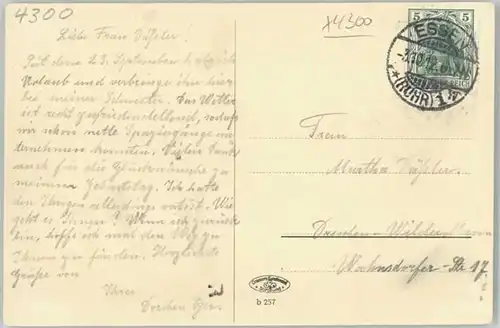 4300
x4300
Liebe Frau Däßler!
Seit dem 23. September habe ich
Urlaub und verbringe ihn hier
bei meiner Schwester. Das Wetter
ist recht zufriedenstellend, sodaß
wir schon nette Spaziergänge un-
ternehmen konnten. Vielen Dank
auch für die Glückwünsche zu
meinem Geburtstag. Ich hatte
den Ihrigen allerdings verlost. Wie
geht es Ihnen? Wenn ich zurück
bin, hoffe ich mal den Weg zu
Ihnen zu finden. Herzlichste
Grüße von
Ihrer
Dorchen
5 5
ESSEN
(RUHR) 1
Frau
Martha Däßler
Dresden-
Str. 17
b 257